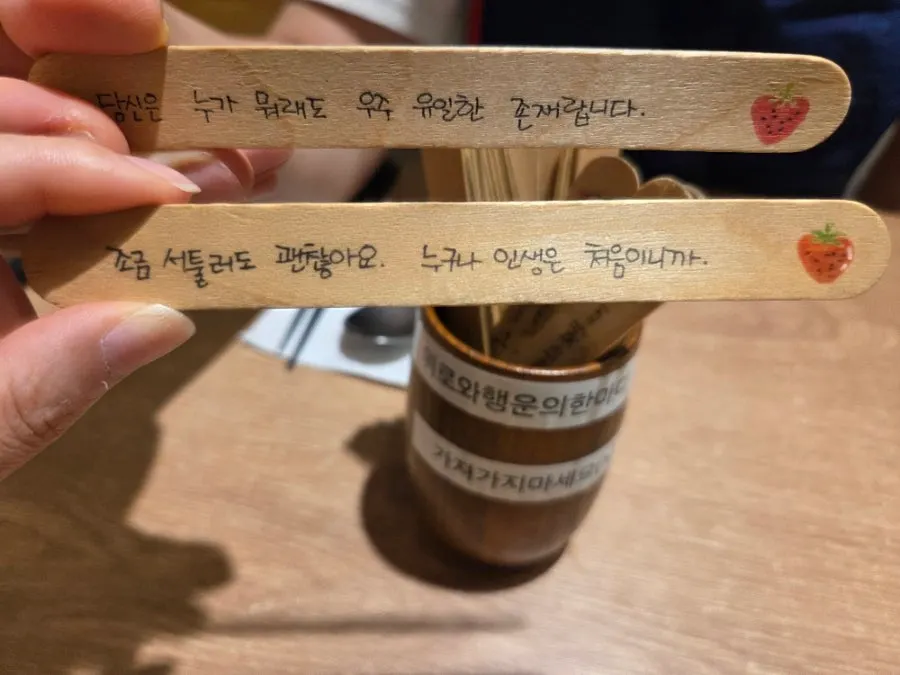 당신은 누가 뭐래도 우주 유일한 존재랍니다.
조금 서툴러도 괜찮아요. 누구나 인생은 처음이니까.
위로와행운의한마디
가져가지마세요